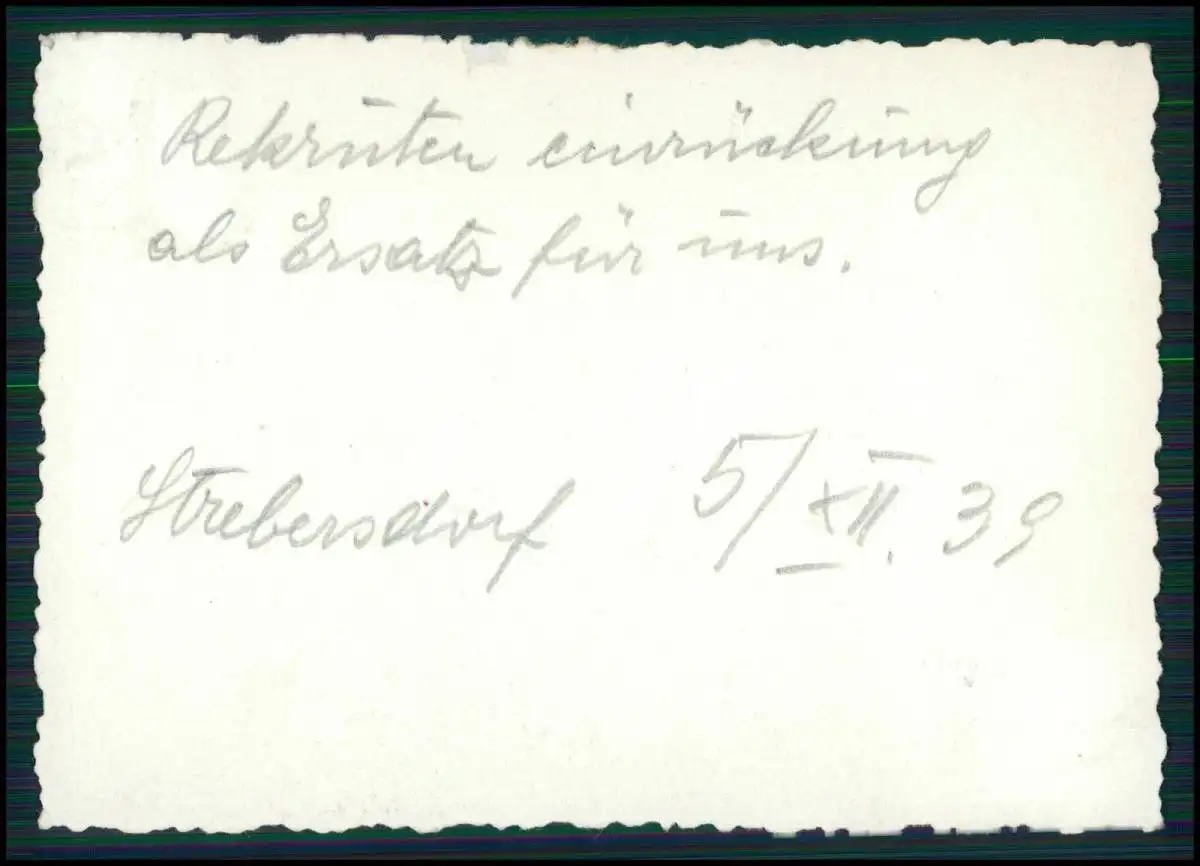 Rekruten einrückung
als Ersatz für uns.
Strebersdorf 5/XII. 39